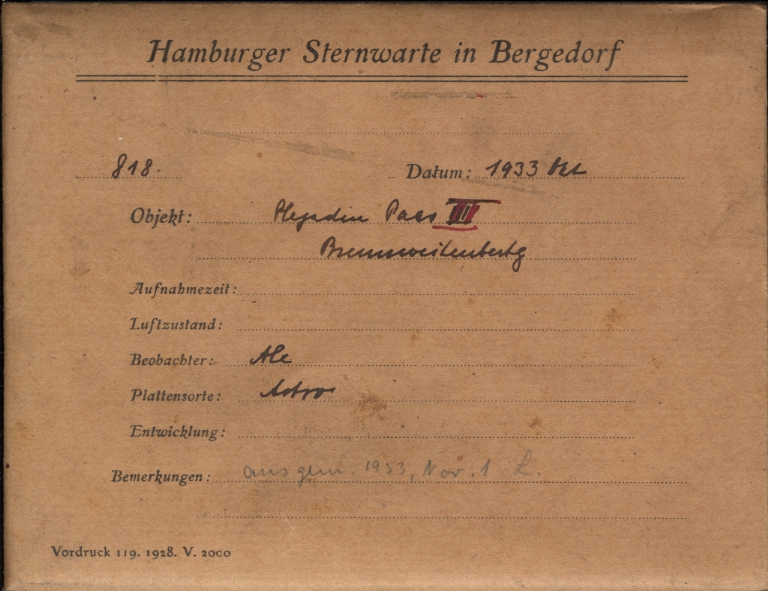 Hamburger Sternwarte in Bergedorf
818. Datum: 1933 Okt
Objekt: Plejaden Pass III
Aufnahmezeit:
Luftzustand:
Beobachter:
Plattensorte: Astro
Entwicklung:
Bemerkungen: ausgem. 1933, Nov. 1 L.
Vordruck 119. 1928. V. 2000